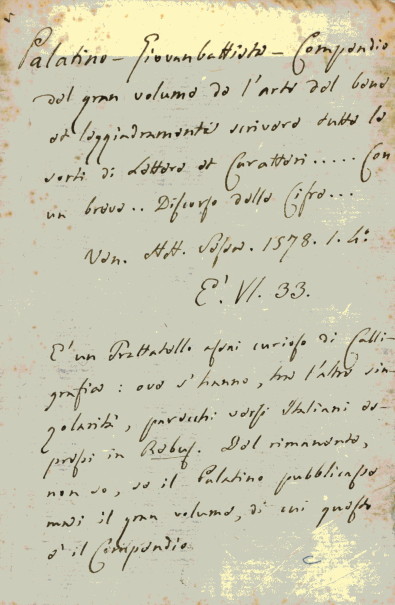 Palatino – Giovanbattista – Compendio
del gran volume de l'arte del bene
et leggiadramente scrivere tutte le
sorti di Lettere et Caratteri..... Con
un breve.. Discorso delle Cifre...
Ven. Sessa. 1578. 1. 4.º
E'. VI. 33.
E' un Trattatello assai curioso di Calli-
grafia: ove s'hanno, tra l'altre sin-
golarità, parecchi versi Italiani es-
pressi in Rebus. Del rimanente,
non so, se il Palatino pubblicasse
mai il gran volume, di cui questo
è il Compendio